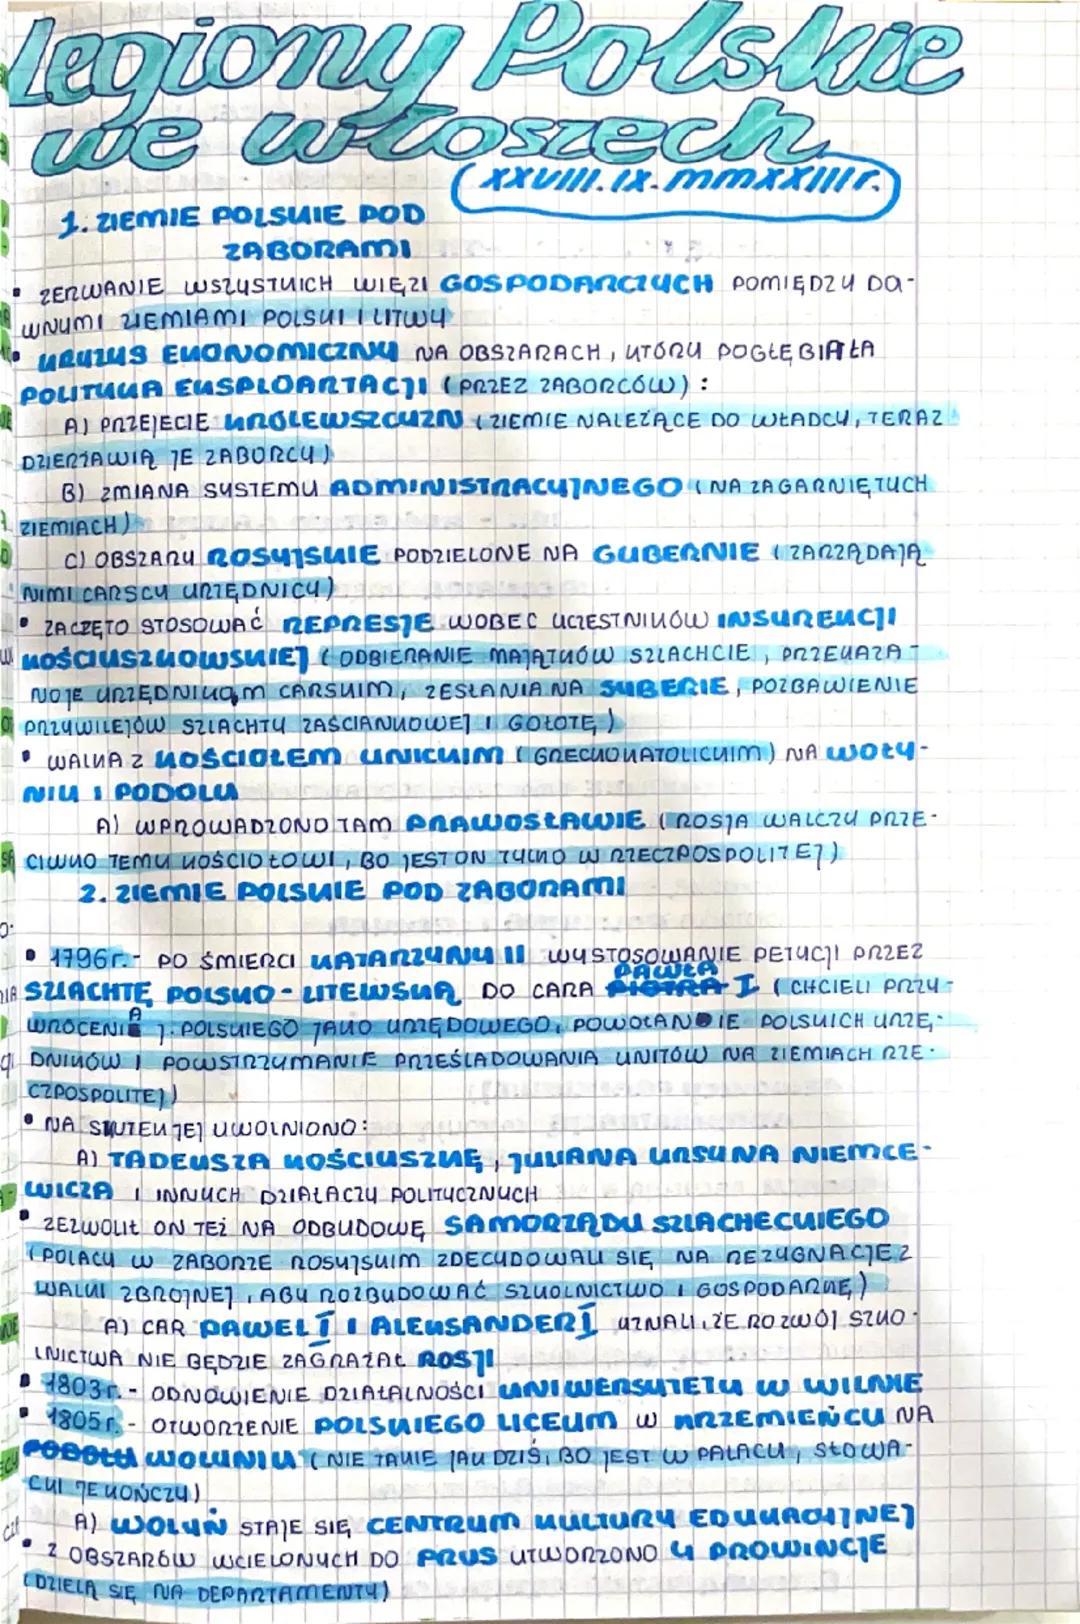 Legiony Polskie
we Włoszech
XXVIII.IX.MMXXIIIr.
1. ZIEMIE POLSKIE POD
ZABORAMI
• ZERWANIE WSZYSTKICH WIĘZI GOSPODARCZYCH POMIĘDZY DA-
WNYMI ZIEMIAMI POLSKI I LITWY
• KRYZYS EKONOMICZNY NA OBSZARACH, KTÓRY POGŁĘBIAŁA
POLITYKA EKSPLOARTACJI (PRZEZ ZABORCÓW):
A) PRZEJECIE KRÓLEWSZCZYZN (ZIEMIE NALEŻĄCE DO WŁADCY, TERAZ
DZIERŻAWIĄ JE ZABORCY)
B) ZMIANA SYSTEMU ADMINISTRACYJNEGO (NA ZAGARNIĘTYCH
ZIEMIACH)
C) OBSZARY ROSYJSKIE PODZIELONE NA GUBERNIE (ZARZĄDAJĄ
NIMI CARSCY URZĘDNICY)
• ZACZĘTO STOSOWAĆ REPRESJE WOBEC UCZESTNIKÓW INSUREKCJI
KOŚCIUSZKOWSKIEJ (ODBIERANIE MAJĄTKÓW SZLACHCIE, PRZEKAZA-
NO JE URZĘDNIKOM CARSKIM, ZESŁANIA NA SYBERIE, POZBAWIENIE
PRZYWILEJÓW SZLACHTY ZAŚCIANKOWEJ I GOŁOTĘ)
• WALKA Z KOŚCIOŁEM UNICKIM (GRECKOKATOLICKIM) NA WOŁY-
NIU I PODOLU
A) WPROWADZONO TAM PRAWOSŁAWIE (ROSJA WALCZY PRZE-
CIWKO TEMU KOŚCIOŁOWI, BO JEST ON TYLKO W RZECZPOSPOLITEJ)
2. ZIEMIE POLSKIE POD ZABORAMI
• 1796r.- PO ŚMIERCI KATARZYNY II WYSTOSOWANIE PETYCJI PRZEZ
PAWŁA
SZLACHTĘ POLSKO-LITEWSKĄ DO CARA PIOTRA I (CHCIELI PRZY-
WRÓCENIA J. POLSKIEGO JAKO URZĘDOWEGO, POWOŁANIE POLSKICH URZĘ-
DNIKÓW I POWSTRZYMANIE PRZEŚLADOWANIA UNITÓW NA ZIEMIACH RZE-
CZPOSPOLITEJ)
• NA SKUTEK JEJ UWOLNIONO:
A) TADEUSZA KOŚCIUSZKĘ, JULIANA URSYNA NIEMCE-
WICZA I INNYCH DZIAŁACZY POLITYCZNYCH
• ZEZWOLIŁ ON TEŻ NA ODBUDOWĘ SAMORZĄDU SZLACHECKIEGO
(POLACY W ZABORZE ROSYJSKIM ZDECYDOWALI SIĘ NA REZYGNACJE Z
WALKI ZBROJNEJ, ABY ROZBUDOWAĆ SZKOLNICTWO I GOSPODARKĘ)
A) CAR PAWEŁ I I ALEKSANDER I UZNALI, ŻE ROZWÓJ SZKO-
LNICTWA NIE BĘDZIE ZAGRAŻAŁ ROSJI
• 1803r. - ODNOWIENIE DZIAŁALNOŚCI UNIWERSYTETU W WILNIE
• 1805r. - OTWORZENIE POLSKIEGO LICEUM W KRZEMIEŃCU NA
PODOLU WOŁYNIU (NIE TAKIE JAK DZIŚ, BO JEST W PAŁACU, SŁOWA-
CKI JE KOŃCZY)
A) WOŁYŃ STAJE SIĘ CENTRUM KULTURY EDUKACYJNEJ
• Z OBSZARÓW WCIELONYCH DO PRUS UTWORZONO 4 PROWINCJE
(DZIELĄ SIĘ NA DEPARTAMENTY)